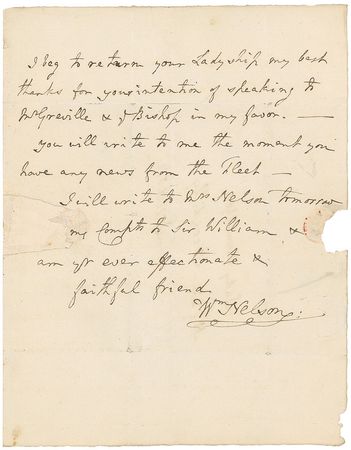 I beg to return your Ladyship my best
thanks for your intention of speaking to
Mr Greville & ye Bishop in my favor. —
You will write to me the moment you
have any news from the Fleet —
I will write to Mrs Nelson tomorrow
my Compts to Sir William &
am yr ever affectionate &
faithful friend
Wm Nelson: